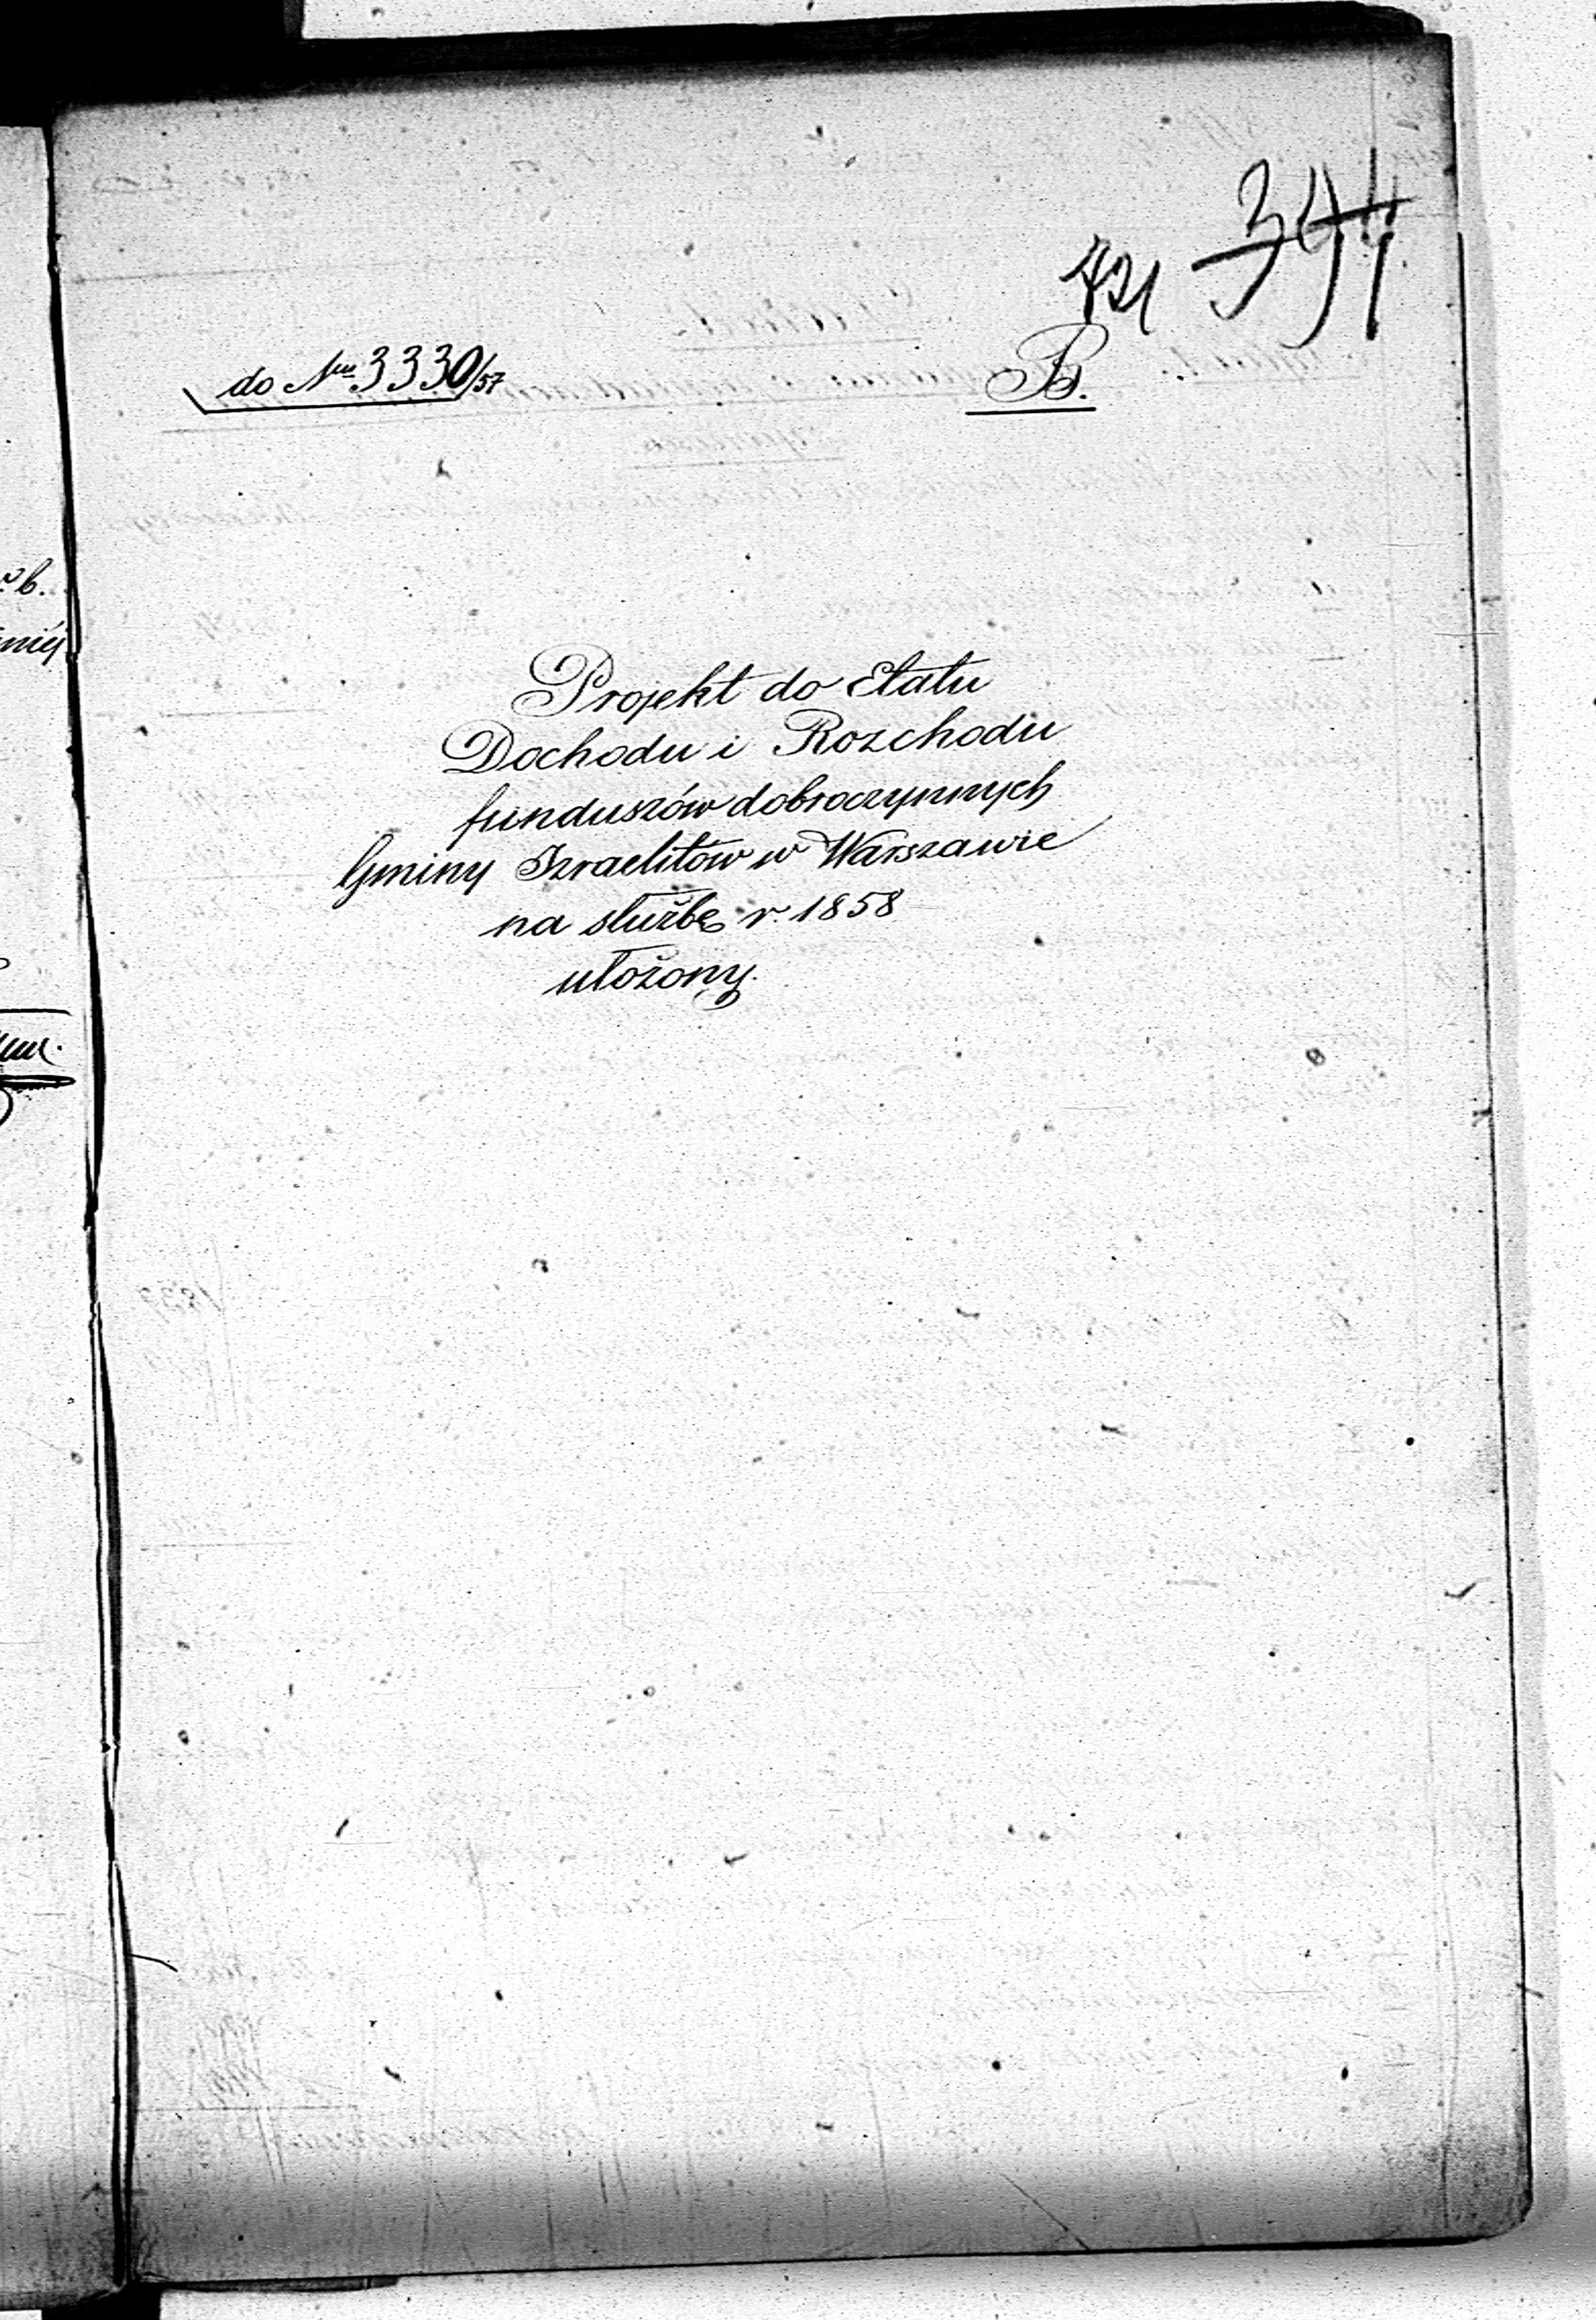 421 394
do Nru 3330/57
B.
Projekt do Etatu
Dochodu i Rozchodu
funduszów dobroczynnych
Gminy Izraelitów w Warszawie
na służbę r. 1858
ułożony.